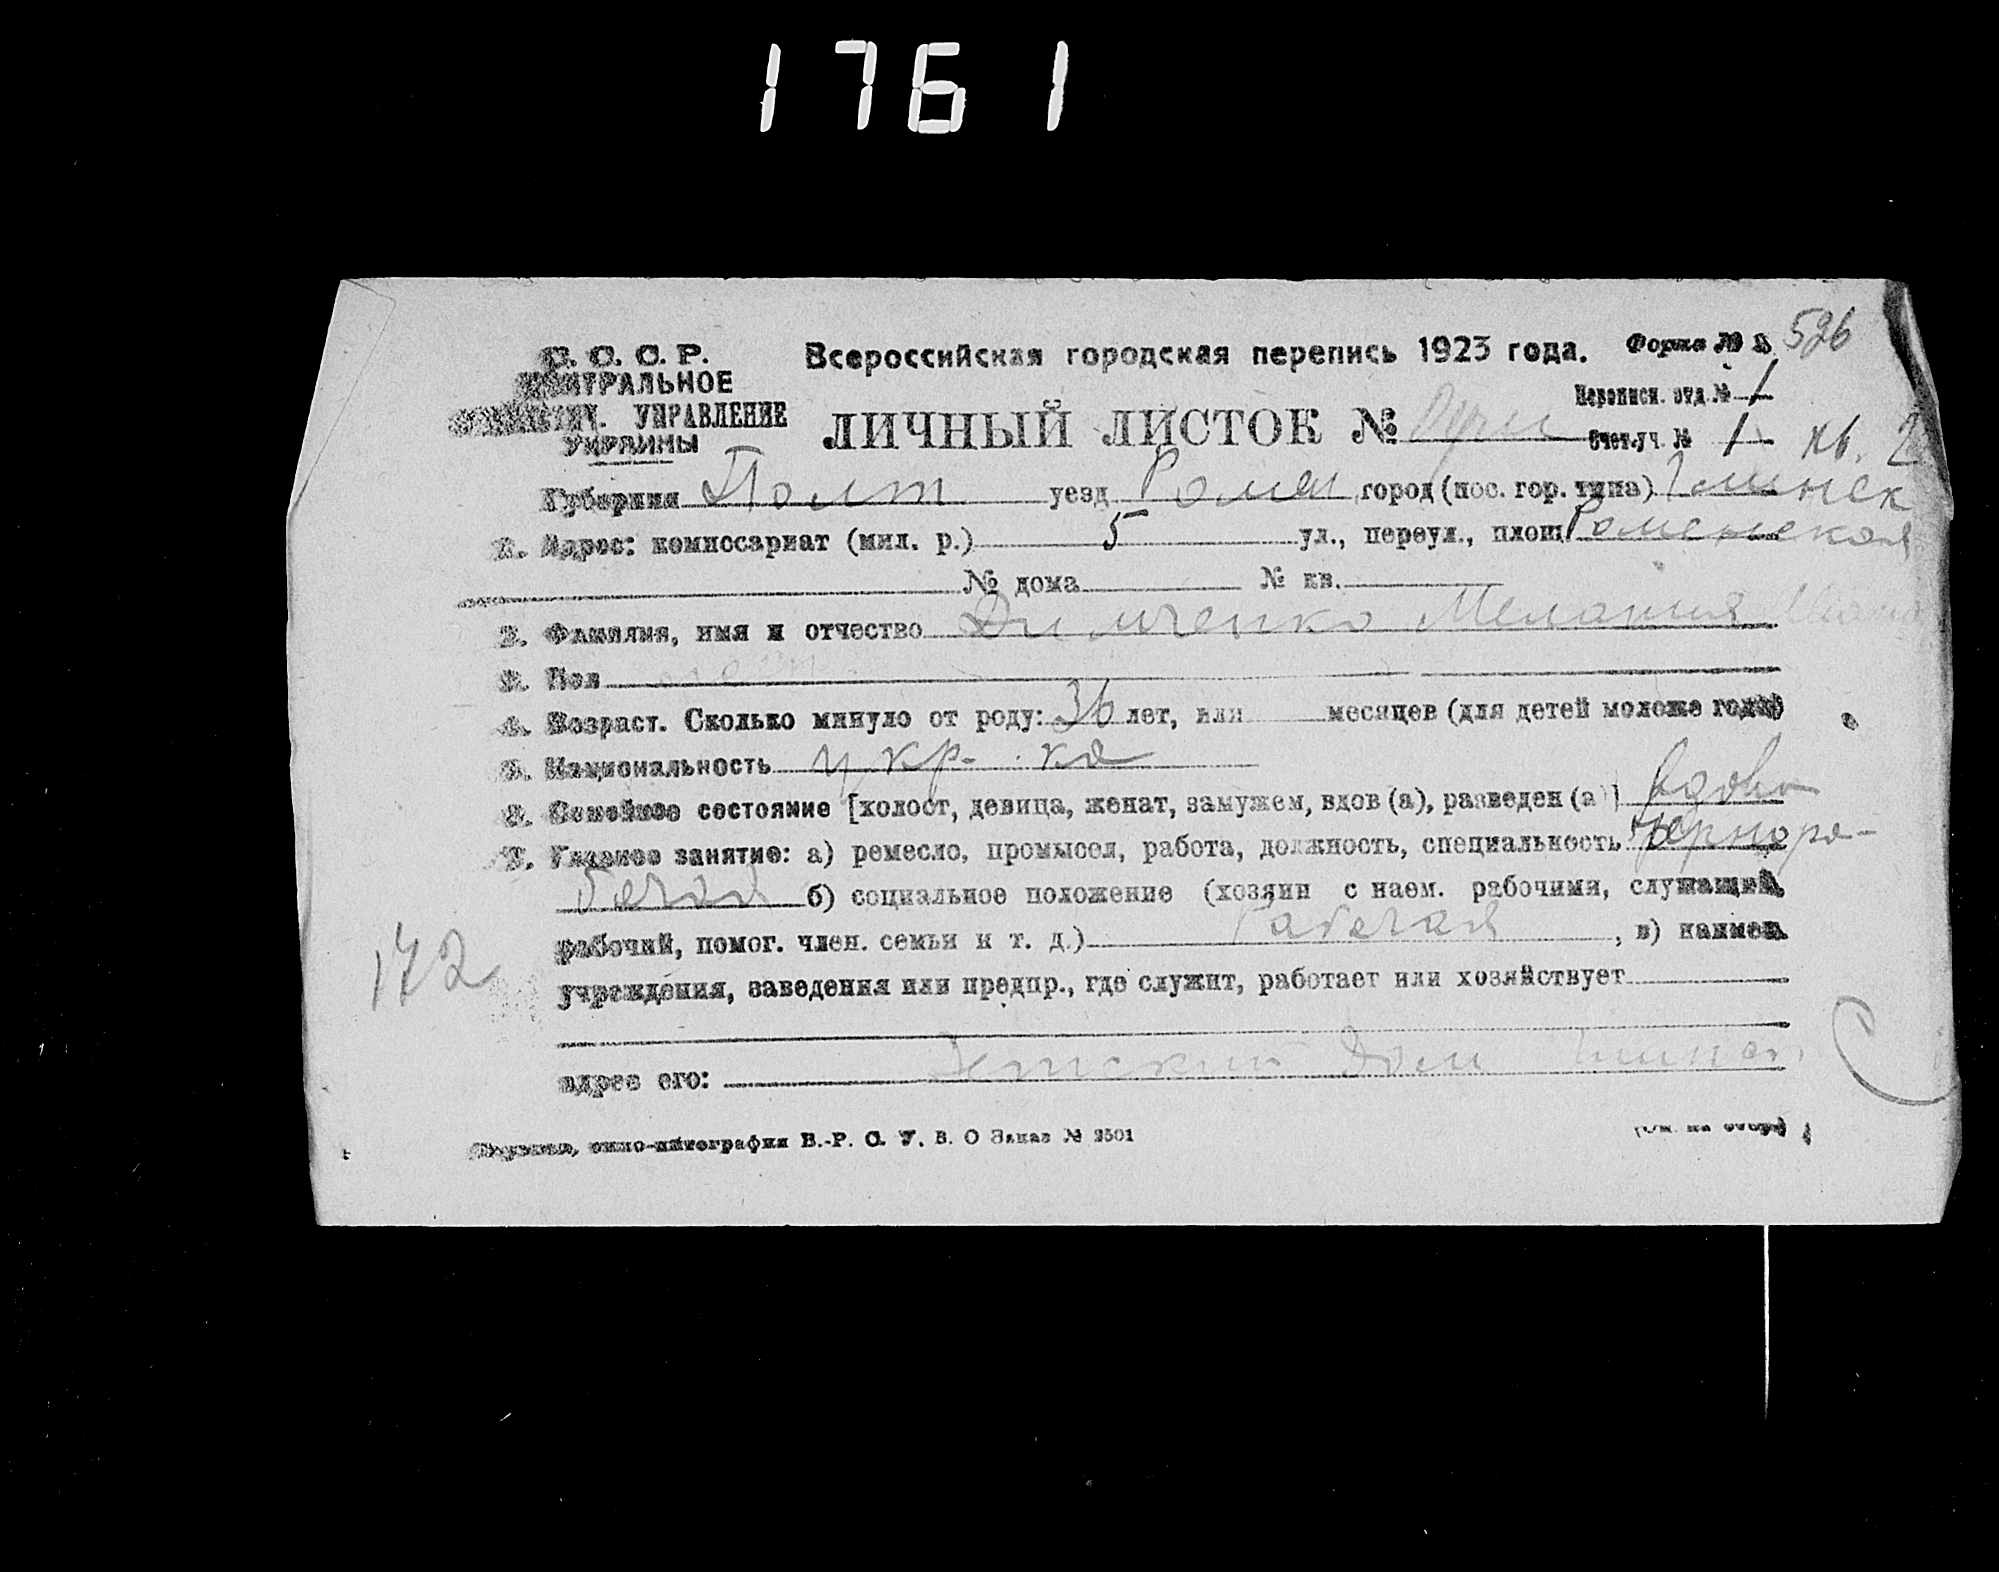 1761
С. С. С. Р. Всероссийская городская перепись 1923 года. Форма № 526
ЦЕНТРАЛЬНОЕ Переписн. отд. № 1
УПРАВЛЕНИЕ ЛИЧНЫЙ ЛИСТОК № Счет. уч. № 1 кв. 2
УКРАИНЫ
Губерния Полт уезд Ромен город (пос. гор. типа) Глинск
1. Адрес: комиссариат (мил. р.) 5 ул., переул., площ. Роменская
№ дома № кв.
2. Фамилия, имя и отчество Димченко Мелания
3. Пол
4. Возраст. Сколько минуло от роду: 36 лет, или месяцев (для детей моложе года)
5. Национальность укр-ка
6. Семейное состояние [холост, девица, женат, замужем, вдов (а), разведен (а)] вдова
7. Главное занятие: а) ремесло, промысел, работа, должность, специальность чернора-
бочая б) социальное положение (хозяин с наем. рабочими, служащий,
рабочий, помог. член. семьи и т. д.) Рабочая, в) наимен.
172
учреждения, заведения или предпр., где служит, работает или хозяйствует
адрес его: Детский Дом
цинко-литография В.-Р. С. У. В. О Заказ № 2501 (См. на обор.)